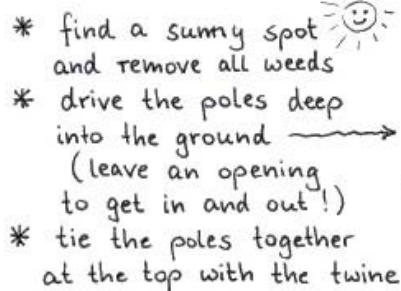 * find a sunny spot
and remove all weeds
* drive the poles deep
into the ground
(leave an opening
to get in and out!)
* tie the poles together
at the top with the twine